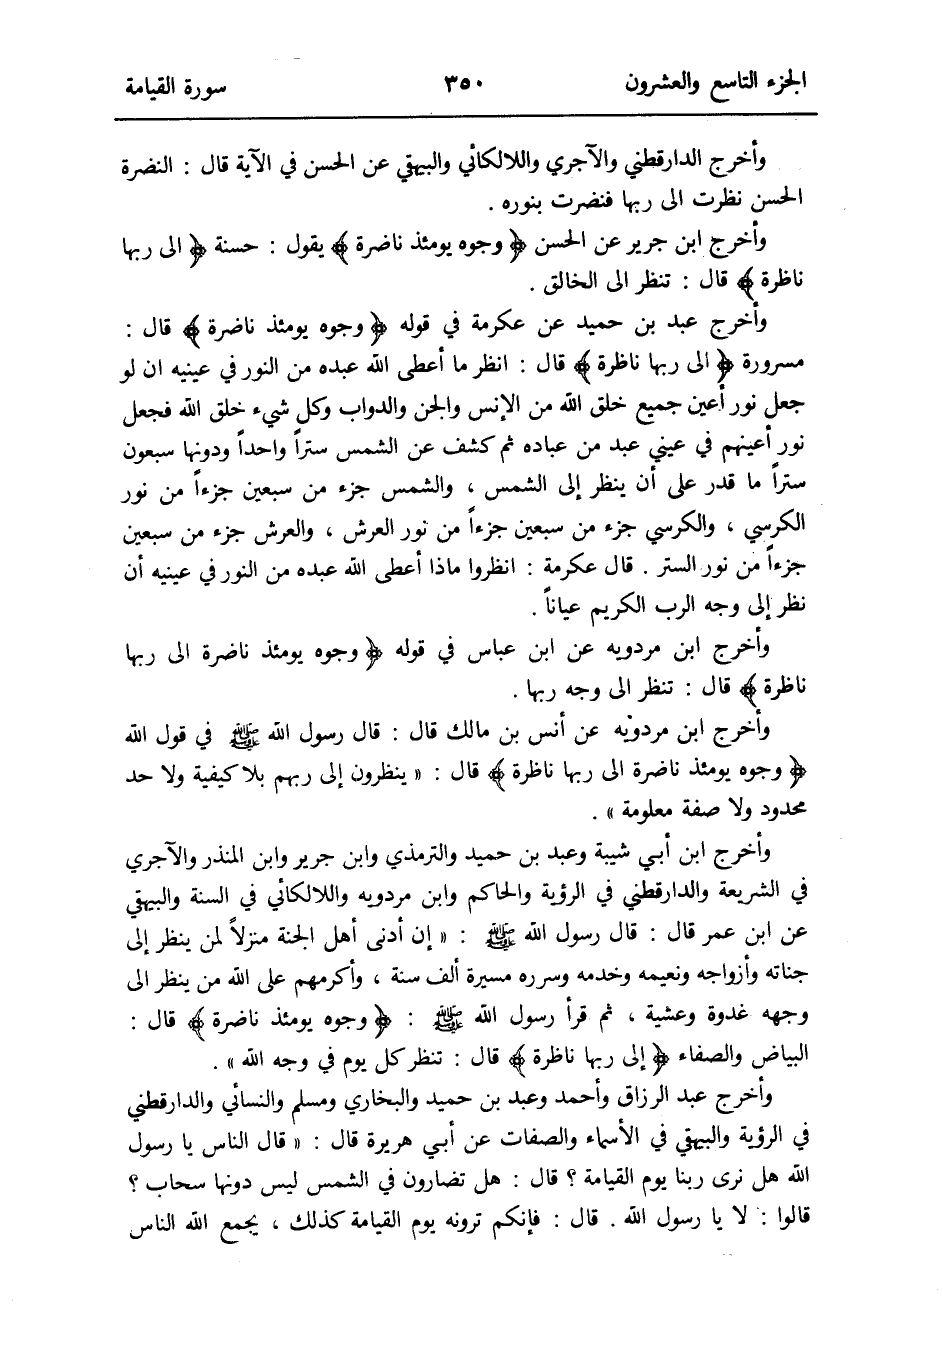 الجزء التاسع والعشرون ٣٥٠ سورة القيامة
وأخرج الدارقطني والآجري واللالكائي والبيهقي عن الحسن في الآية قال : النضرة
الحسن نظرت الى ربها فنضرت بنوره .
وأخرج ابن جرير عن الحسن ﴿ وجوه يومئذ ناضرة ﴾ يقول : حسنة ﴿ الى ربها
ناظرة ﴾ قال : تنظر الى الخالق .
وأخرج عبد بن حميد عن عكرمة في قوله ﴿ وجوه يومئذ ناضرة ﴾ قال :
مسرورة ﴿ الى ربها ناظرة ﴾ قال : انظر ما أعطى الله عبده من النور في عينيه ان لو
جعل نور أعين جميع خلق الله من الإنس والجن والدواب وكل شيء خلق الله فجعل
نور أعينهم في عيني عبد من عباده ثم كشف عن الشمس ستراً واحداً ودونها سبعون
ستراً ما قدر على أن ينظر إلى الشمس ، والشمس جزء من سبعين جزءاً من نور
الكرسي ، والكرسي جزء من سبعين جزءاً من نور العرش ، والعرش جزء من سبعين
جزءاً من نور الستر . قال عكرمة : انظروا ماذا أعطى الله عبده من النور في عينيه أن
نظر إلى وجه الرب الكريم عياناً .
وأخرج ابن مردويه عن ابن عباس في قوله ﴿ وجوه يومئذ ناضرة الى ربها
ناظرة ﴾ قال : تنظر الى وجه ربها .
وأخرج ابن مردويْه عن أنس بن مالك قال : قال رسول الله ﷺ في قول الله
﴿ وجوه يومئذ ناضرة الى ربها ناظرة ﴾ قال : « ينظرون إلى ربهم بلا كيفية ولا حد
محدود ولا صفة معلومة » .
وأخرج ابن أبي شيبة وعبد بن حميد والترمذي وابن جرير وابن المنذر والآجري
في الشريعة والدارقطني في الرؤية والحاكم وابن مردويه واللالكائي في السنة والبيهقي
عن ابن عمر قال : قال رسول الله ﷺ : « إن أدنى أهل الجنة منزلاً لمن ينظر إلى
جناته وأزواجه ونعيمه وخدمه وسرره مسيرة ألف سنة ، وأكرمهم على الله من ينظر الى
وجهه غدوة وعشية ، ثم قرأ رسول الله ﷺ : ﴿ وجوه يومئذ ناضرة ﴾ قال :
البياض والصفاء ﴿ إلى ربها ناظرة ﴾ قال : تنظر كل يوم في وجه الله » .
وأخرج عبد الرزاق وأحمد وعبد بن حميد والبخاري ومسلم والنسائي والدارقطني
في الرؤية والبيهقي في الأسماء والصفات عن أبي هريرة قال : « قال الناس يا رسول
الله هل نرى ربنا يوم القيامة ؟ قال : هل تضارون في الشمس ليس دونها سحاب ؟
قالوا : لا يا رسول الله . قال : فإنكم ترونه يوم القيامة كذلك ، يجمع الله الناس